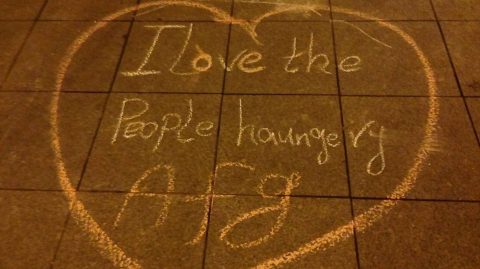 I love the
People haungeiry
Afg